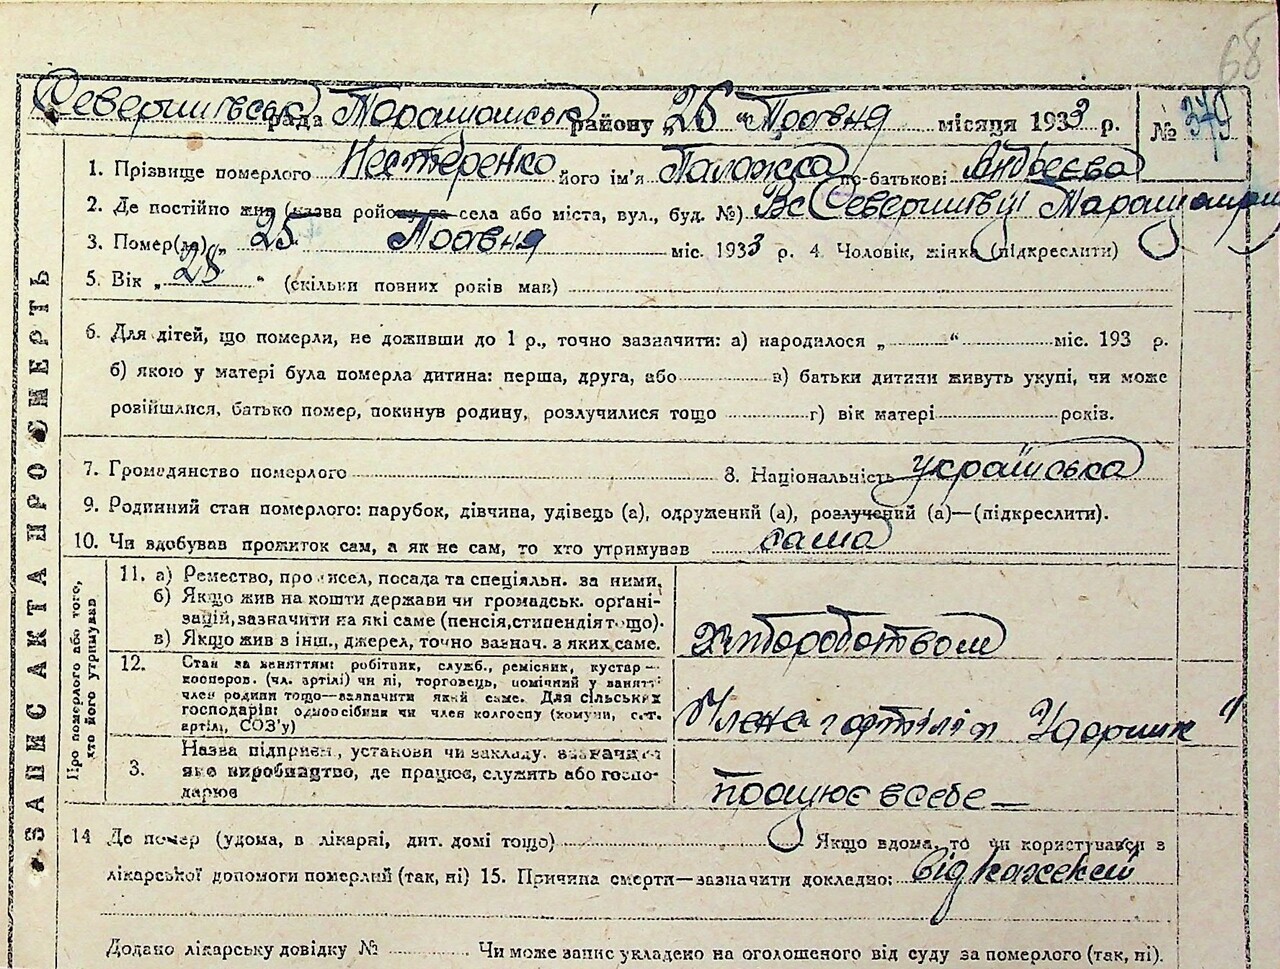 68
рада Таращанськ району „25 “ Травня місяця 1933 р. № 379
1. Прізвище померлого Нестеренко його ім'я Палажка по-батькові Андрєєва
2. Де постійно жив (назва району та села або міста, вул., буд. №)
3. Помер(ла) „ 25 Травня міс. 1933 р. 4. Чоловік, жінка (підкреслити)
5. Вік „ 28 “ (скільки повних років мав)
6. Для дітей, що померли, не доживши до 1 р., точно зазначити: а) народилося „ “ міс. 193 р.
б) якою у матері була померла дитина: перша, друга, або в) батьки дитини живуть укупі, чи може
розійшлися, батько помер, покинув родину, розлучилися тощо г) вік матері років.
7. Громадянство померлого 8. Національність українська
9. Родинний стан померлого: парубок, дівчина, удівець (а), одружений (а), розлучений (а)—(підкреслити).
10. Чи здобував прожиток сам, а як не сам, то хто утримував сама
ЗАПИС АКТА ПРО СМЕРТЬ
Про померлого або того,
хто його утримував
11. а) Ремество, промисел, посада та спеціяльн. за ними.
б) Якщо жив на кошти держави чи громадськ. органі-
зацій, зазначити на які саме (пенсія, стипендія тощо).
в) Якщо жив з інш., джерел, точно зазнач. з яких саме.
Хліборобством
12. Стан за заняттям: робітник, служб., ремісник, кустар—
кооперов. (чл. артілі) чи ні, торговець, помічний у занятті
член родини тощо—зазначити який саме. Для сільських
господарів: одноосібник чи член колгоспу (комуни, с.-г.
артілі, СОЗ'у)
Члена артілі
3. Назва підприєм., установи чи закладу, зазначити
яке виробництво, де працює, служить або госпо-
дарює
працює в себе —
14 Де помер (удома, в лікарні, дит. домі тощо) Якщо вдома, то чи користувався з
лікарської допомоги померлий (так, ні) 15. Причина смерти—зазначити докладно: від
Додано лікарську довідку № Чи може запис укладено на оголошеного від суду за померлого (так, ні).